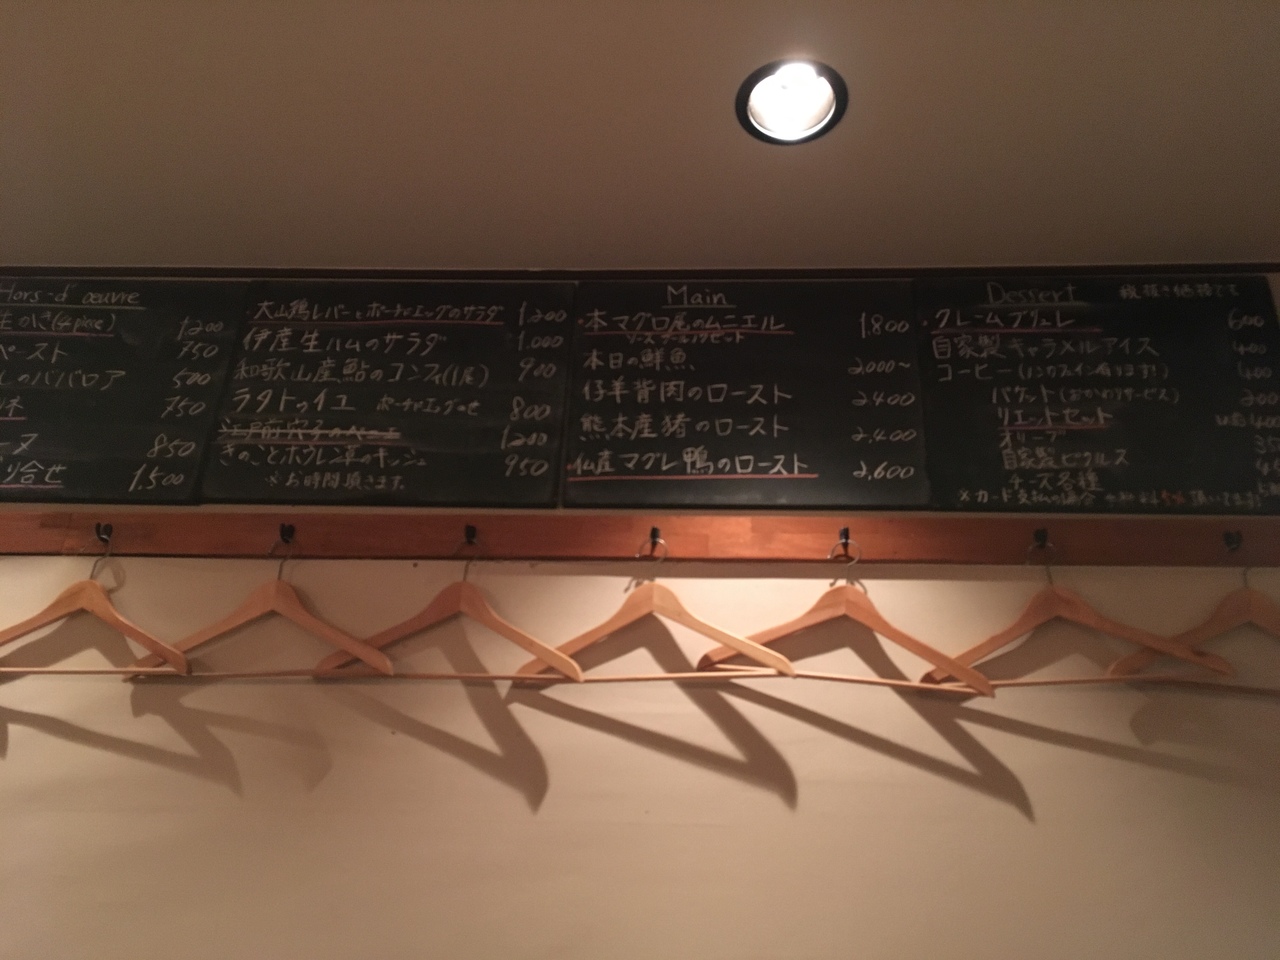 Hors-d'œuvre
生かき(4piece) 1200
ペースト 750
しのババロア 500
750
ーヌ 850
り合せ 1,500
大山鶏レバーとポーチドエッグのサラダ 1,200
伊産生ハムのサラダ 1,000
和歌山産鮎のコンフィ(1尾) 900
ラタトゥイユ ポーチドエッグのせ 800
江戸前穴子の 1200
きのことホウレン草のキッシュ 950
※お時間頂きます。
Main
本マグロ尾のムニエル 1,800
ソース
本日の鮮魚 2,000~
仔羊背肉のロースト 2,400
熊本産猪のロースト 2,400
仏産マグレ鴨のロースト 2,600
Dessert 税抜き価格です
クレームブリュレ 600
自家製キャラメルアイス 400
コーヒー(ノンカフェイン有ります!) 400
バケット(おかわりサービス) 200
リエットセット
オリーブ
自家製ピクルス
チーズ各種
※カード支払の場合